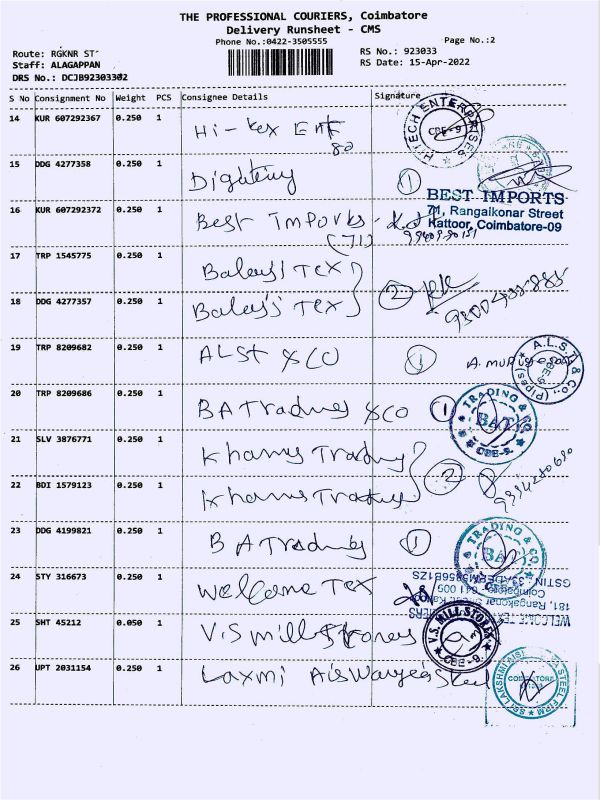 THE PROFESSIONAL COURIERS, Coimbatore
Delivery Runsheet - CMS
Phone No.:0422-3505555
Page No.:2
Route: RGKNR ST
RS No.: 923033
Staff: ALAGAPPAN
RS Date: 15-Apr-2022
DRS No.: DCJB92303302
S No Consignment No Weight PCS Consignee Details Signature
14 KUR 607292367 0.250 1 Hi-Tex Ent
80
H-TECH ENTERPRISES
CBE-9
15 DDG 4277358 0.250 1 ①
BEST IMPORTS
71, Rangaikonar Street
Kattoor, Coimbatore-09
16 KUR 607292372 0.250 1 Best Imports -
(71)
17 TRP 1545775 0.250 1 Balaji Tex
18 DDG 4277357 0.250 1 Balaji Tex ②
19 TRP 8209682 0.250 1 ALST &CO ①
A.L.S.T & Co., (Pipes)
20 TRP 8209686 0.250 1 BA Trading &CO ①
TRADING & CO
BAT
CBE-9.
21 SLV 3876771 0.250 1 Khams Trading
22 BDI 1579123 0.250 1 Khams Trading ②
23 DDG 4199821 0.250 1 BA Trading ①
TRADING & CO
BAT
24 STY 316673 0.250 1 Welcome Tex
WELCOME TEX
181, Rangakonar Street
Coimbatore 641 009
25 SHT 45212 0.050 1 V.S mill Stores
V.S. MILL STORES
CBE-9.
26 UPT 2031154 0.250 1 Laxmi Aiswarya Steel
STEEL FIRM